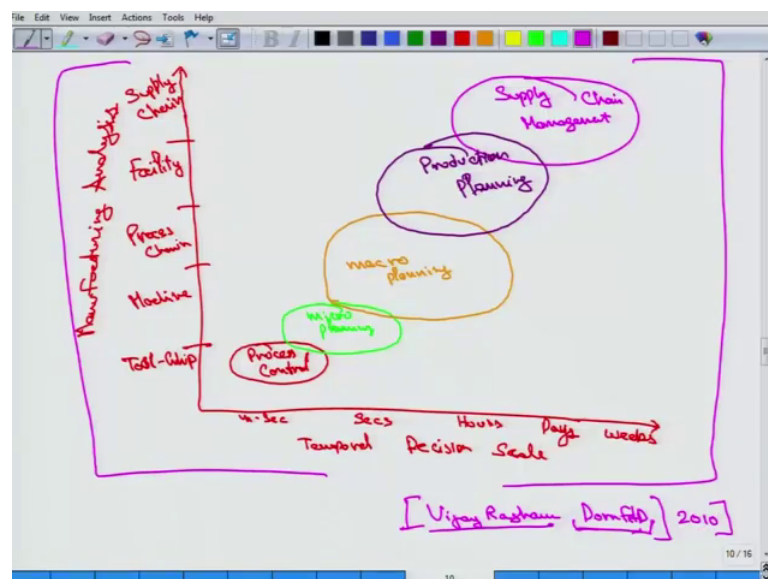 File Edit View Insert Actions Tools Help
B I
Manufacturing Analysis
Supply
Chain
Facility
Proces
Chain
Machine
Tool-Chip
Supply Chain
Management
Production
Planning
macro
planning
micro
planning
Proces
Control
m-Sec Secs Hours Days weeks
Temporal Decision Scale
[Vijay Ragham, Dornfeld, 2010]
10/16
10